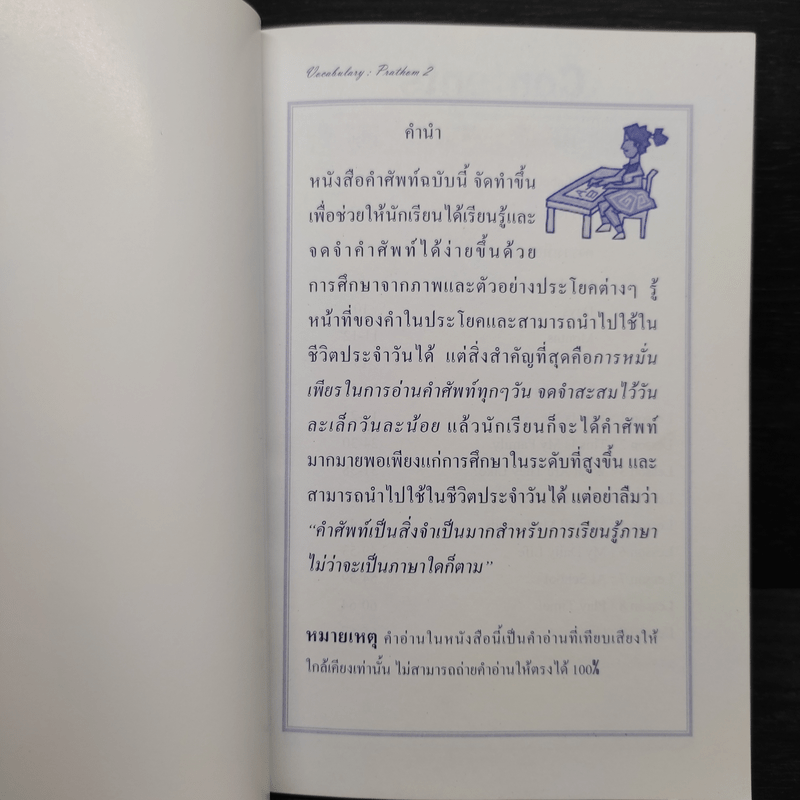 Vocabulary : Prathom 2
คำนำ
หนังสือคำศัพท์ฉบับนี้ จัดทำขึ้น
เพื่อช่วยให้นักเรียนได้เรียนรู้และ
จดจำคำศัพท์ได้ง่ายขึ้นด้วย
การศึกษาจากภาพและตัวอย่างประโยคต่างๆ รู้
หน้าที่ของคำในประโยคและสามารถนำไปใช้ใน
ชีวิตประจำวันได้ แต่สิ่งสำคัญที่สุดคือการหมั่น
เพียรในการอ่านคำศัพท์ทุกๆวัน จดจำสะสมไว้วัน
ละเล็กวันละน้อย แล้วนักเรียนก็จะได้คำศัพท์
มากมายพอเพียงแก่การศึกษาในระดับที่สูงขึ้น และ
สามารถนำไปใช้ในชีวิตประจำวันได้ แต่อย่าลืมว่า
“คำศัพท์เป็นสิ่งจำเป็นมากสำหรับการเรียนรู้ภาษา
ไม่ว่าจะเป็นภาษาใดก็ตาม”
หมายเหตุ คำอ่านในหนังสือนี้เป็นคำอ่านที่เทียบเสียงให้
ใกล้เคียงเท่านั้น ไม่สามารถถ่ายคำอ่านให้ตรงได้ 100%